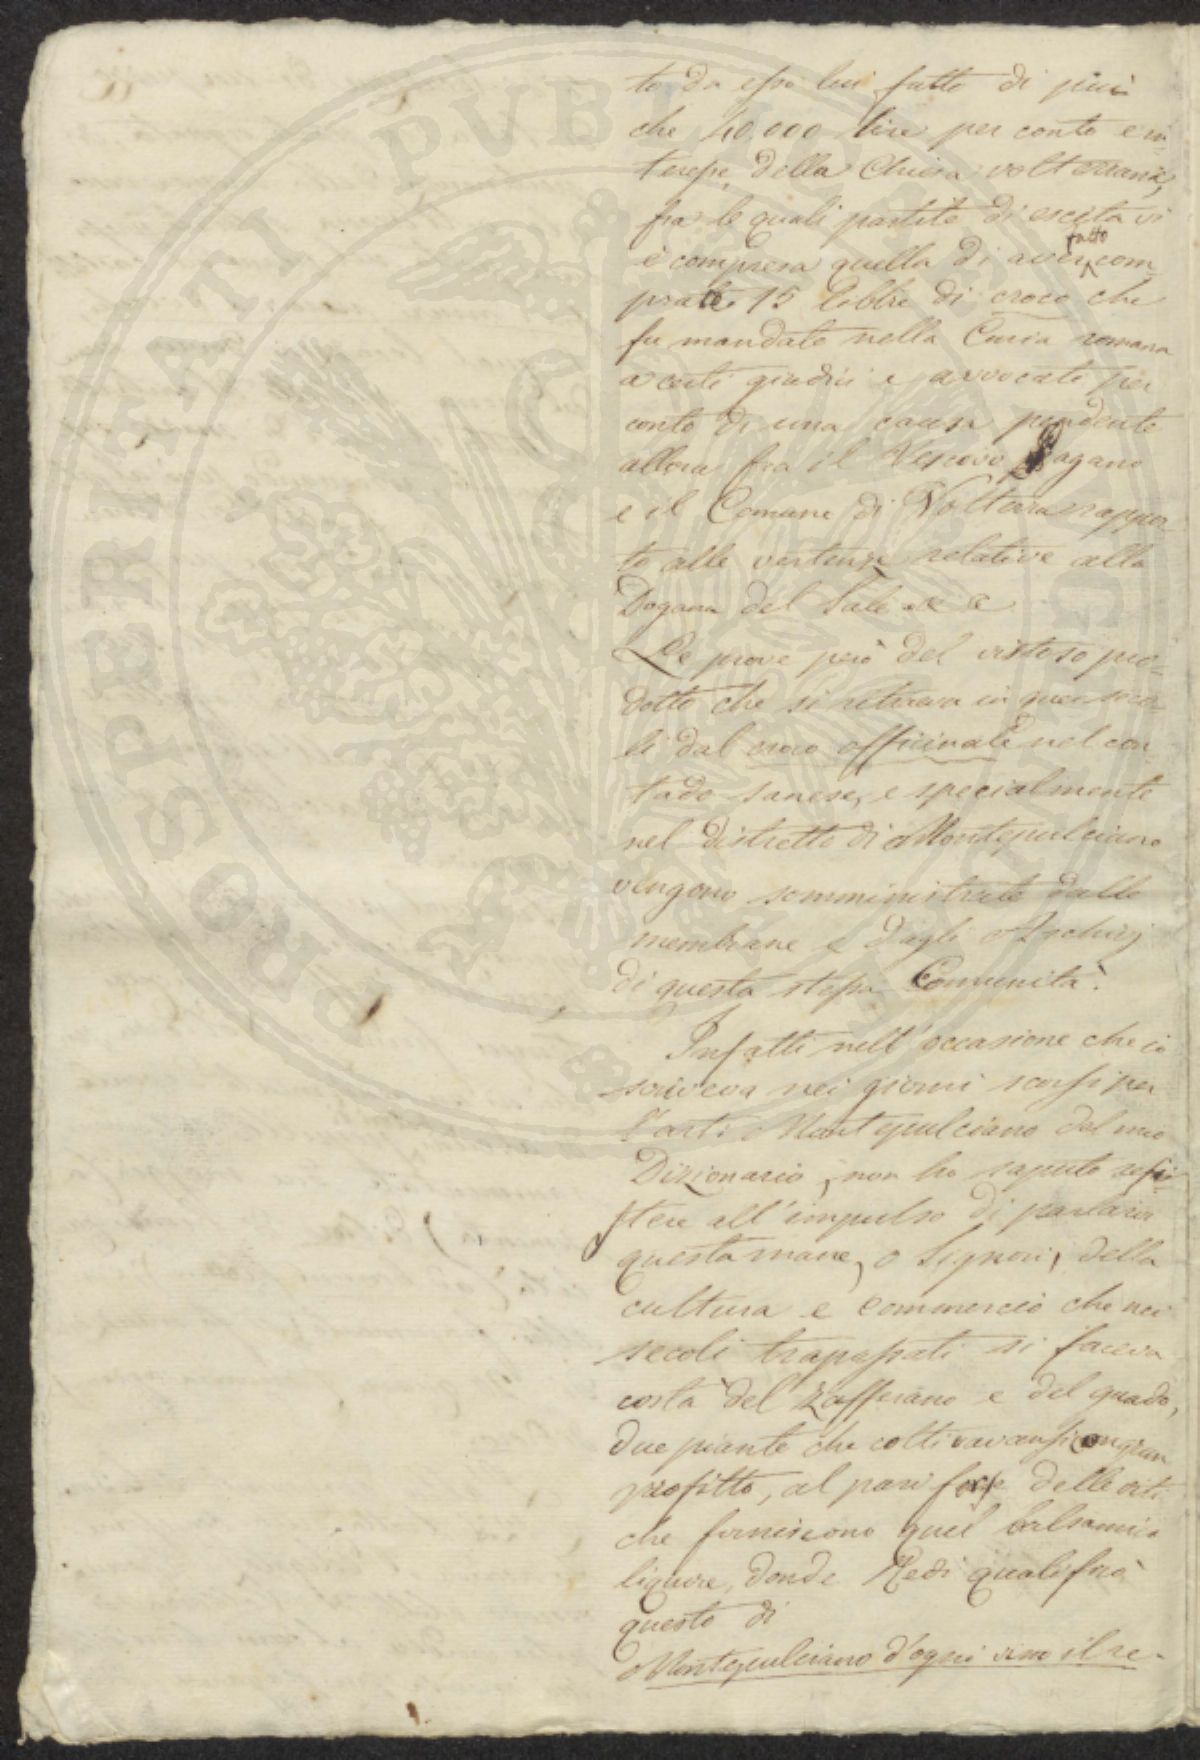 to da esso lui fatto di più
che 40.000 lire per conto e in-
teresse della Chiesa volterrana,
fra le quali partite di escita vi
è compresa quella di aver fatto com-
prate 15 libbre di croco che
fu mandato nella Curia romana
a certi giudici e avvocati per
conto di una causa pendente
allora fra il Vescovo Pagano
e il Comune di Volterra rappor-
to alle vertenze relative alla
Dogana del Sale
Le prove però del vistoso pro-
dotto che si ritraeva in quei seco-
li dal croco officinale nel con-
tado sanese, e specialmente
nel distretto di Montepulciano
vengono somministrate dalle
membrane e dagli Archivj
di questa stessa Comunità.
Infatti nell'occasione che io
scriveva nei giorni scorsi per
l'arti. Montepulciano del mio
Dizionario, non ho saputo resi-
stere all'impulso di parlarvi
questa mane, o Signori, della
cultura e commercio che nei
secoli trapassati si faceva
costà del Zafferano e del guado,
due piante che coltivavansi con gran
profitto, al pari forse delle viti
che forniscono quel balsamico
liquore, donde Redi qualificò
questo di
Montepulciano d'ogni vino il re.
PROSPERITATI PUBLICAE